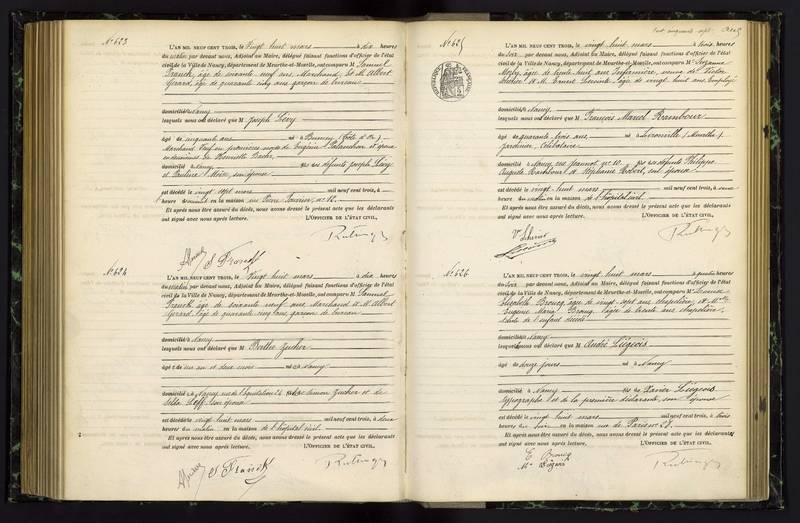 N° 623
L'AN MIL NEUF CENT TROIS, le Vingt huit mars à dix heures
du matin par devant nous, Adjoint au Maire, délégué faisant fonctions d'officier de l'état
civil de la Ville de Nancy, département de Meurthe-et-Moselle, ont comparu M Samuel
Franck, âgé de soixante neuf ans, Marchand, et M. Albert
Gérard, âgé de quarante cinq ans garçon de bureau
domiciliés à Nancy
lesquels nous ont déclaré que M Joseph Lévy
âgé de cinquante ans né à (Côte d'Or)
Marchand Veuf en premières noces de Eugénie et époux
en de
domicilié à Nancy fils de défunts Joseph Lévy
et Pauline son épouse
est décédé le vingt sept mars mil neuf cent trois, à
heure en la maison rue Pierre Fourier, n° 12.
Et après nous être assuré du décès, nous avons dressé le présent acte que les déclarants
ont signé avec nous après lecture. L'OFFICIER DE L'ÉTAT CIVIL,
S Franck
N° 624
L'AN MIL NEUF CENT TROIS, le Vingt huit mars à dix heures
du matin par devant nous, Adjoint au Maire, délégué faisant fonctions d'officier de l'état
civil de la Ville de Nancy, département de Meurthe-et-Moselle, ont comparu M Samuel
Franck, âgé de soixante neuf ans, Marchand et M. Albert
Gérard, âgé de quarante cinq ans garçon de bureau
domiciliés à Nancy
lesquels nous ont déclaré que M Berthe Zucher
âgé de un an et deux mois né à Nancy
domicilié à Nancy, rue de l'Équitation 24 fille de Simon Zucher et de
son épouse
est décédé le vingt huit mars mil neuf cent trois, à deux
heures du matin en la maison de l'hôpital civil.
Et après nous être assuré du décès, nous avons dressé le présent acte que les déclarants
ont signé avec nous après lecture. L'OFFICIER DE L'ÉTAT CIVIL,
S Franck
N° 625
L'AN MIL NEUF CENT TROIS, le vingt huit mars à trois heures
du soir par devant nous, Adjoint au Maire, délégué faisant fonctions d'officier de l'état
civil de la Ville de Nancy, département de Meurthe-et-Moselle, ont comparu M Suzanne
âgée de trente huit ans Infirmière, veuve de Victor
et M. Ernest âgé de vingt huit ans Employé
domiciliés à Nancy
lesquels nous ont déclaré que M François Marcel Rambour
âgé de quarante trois ans né à (Meurthe)
Jardinier, Célibataire
domicilié à Nancy, rue Jeannot n° 10 fils de défunts Philippe
Auguste Rambour et Stéphanie Robert, son épouse
est décédé le vingt huit mars mil neuf cent trois, à
heure du matin en la maison de l'hôpital civil.
Et après nous être assuré du décès, nous avons dressé le présent acte que les déclarants
ont signé avec nous après lecture. L'OFFICIER DE L'ÉTAT CIVIL,
N° 626
L'AN MIL NEUF CENT TROIS, le vingt huit mars à quatre heures
du soir par devant nous, Adjoint au Maire, délégué faisant fonctions d'officier de l'état
civil de la Ville de Nancy, département de Meurthe-et-Moselle, ont comparu M Louise
Élisabeth Broucq, âgée de vingt sept ans chapelière, et Mlle
Eugénie Marie Broucq, âgée de trente ans chapelière,
tante de l'enfant décédé
domiciliés à Nancy
lesquels nous ont déclaré que M André Liégeois
âgé de douze jours né à Nancy
domicilié à Nancy fils de Xavier Liégeois
typographe et de la première déclarante, son épouse
est décédé le vingt huit mars mil neuf cent trois, à trois
heures du soir en la maison rue de Paris n° 28.
Et après nous être assuré du décès, nous avons dressé le présent acte que les déclarants
ont signé avec nous après lecture. L'OFFICIER DE L'ÉTAT CIVIL,